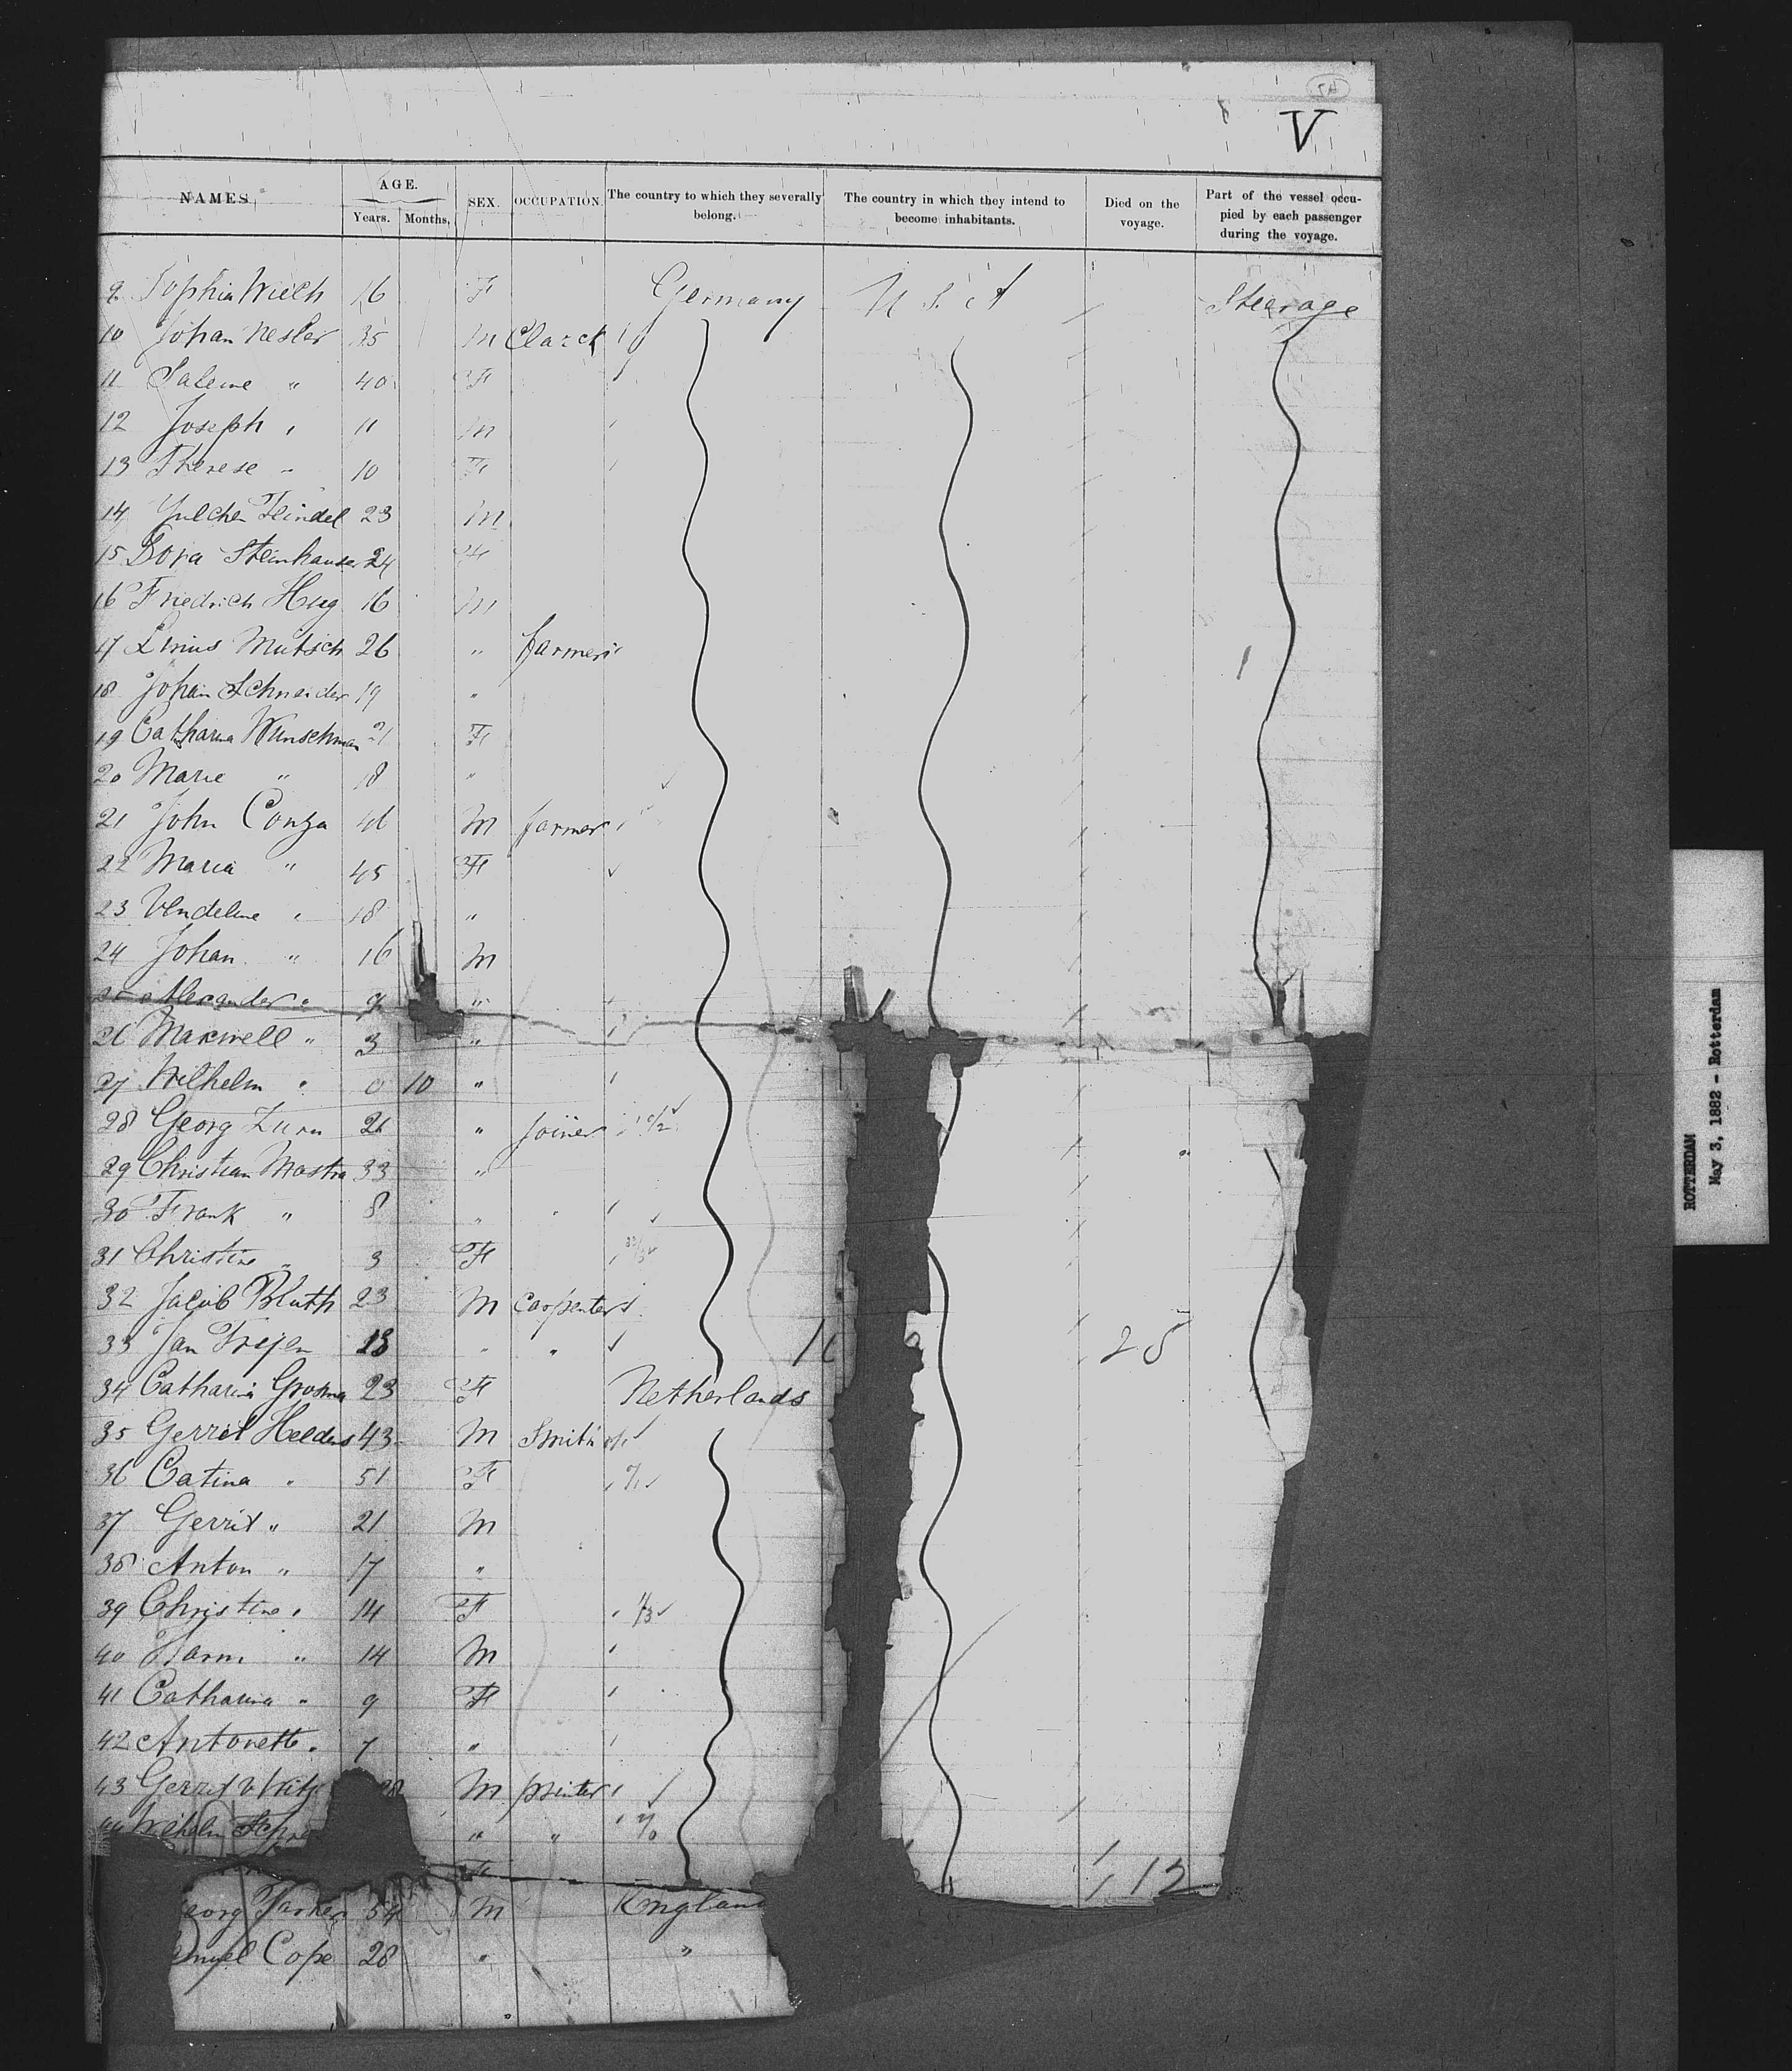 V
NAMES. AGE. Years. Months. SEX. OCCUPATION. The country to which they severally belong. The country in which they intend to become inhabitants. Died on the voyage. Part of the vessel occupied by each passenger during the voyage.
9 Sophia Wiech 16 F Germany U S A Steerage
10 Johan Nesler 35 M Clarck
11 Saleme " 40 F
12 Joseph " 11 M
13 Therese " 10 F
14 Julchen Feindel 23 M
15 Dora Steinhauser 24 F
16 Friedrich Hug 16 M
17 Linus Mutsch 26 " farmer
18 Johan Schneider 19 "
19 Catharina Wunschman 21 F
20 Marie " 18 "
21 John Conza 46 M farmer
22 Maria " 45 F
23 Vendeline " 18 "
24 Johan " 16 M
25 Alexander " 9 "
26 Maxwell " 3 "
27 Wilhelm " 0 10 "
28 Georg Zurn 26 " Joiner
29 Christian Mastra 33 "
30 Frank " 8 "
31 Christine " 3 F
32 Jacob Bluth 23 M carpenter
33 Jan Freyen 18 " " 28
34 Catharina Grosma 23 F Netherlands
35 Gerrit Helders 43 M Smith
36 Catina " 51 F
37 Gerrit " 21 M
38 Anton " 17 "
39 Christine " 14 F
40 Harm " 14 M
41 Catharina " 9 F
42 Antonette " 7 "
43 Gerrit v M printer
44 Wilhelm " "
F 12
eorg Parker 54 M England
amuel Cope 28 " "
ROTTERDAM
May 3, 1882 - Rotterdam